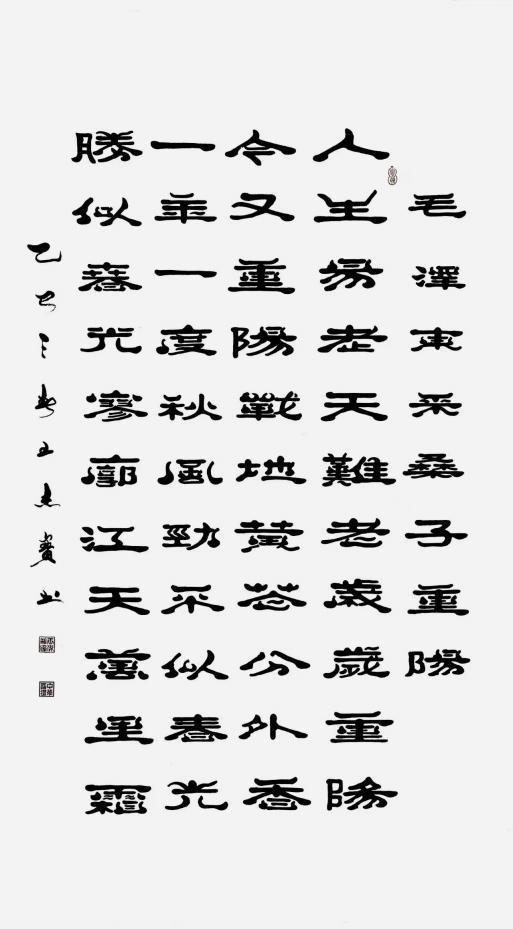 毛澤東采桑子重陽
人生易老天難老歲歲重陽
今又重陽戰地黃花分外香
一年一度秋風勁不似春光
勝似春光寥廓江天萬里霜
乙巳之春王惠寶書